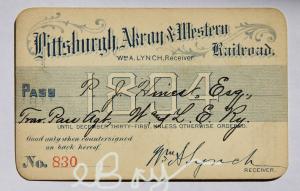 Pittsburgh, Akron & Western
Railroad.
Wm. A. LYNCH, Receiver
1894
PASS P. J. Esq.,
Trav. Pass Agt. W & L. E. Ry.
UNTIL DECEMBER THIRTY-FIRST, UNLESS OTHERWISE ORDERED.
Good only when countersigned
on back hereof.
No. 830
Wm A Lynch
RECEIVER.